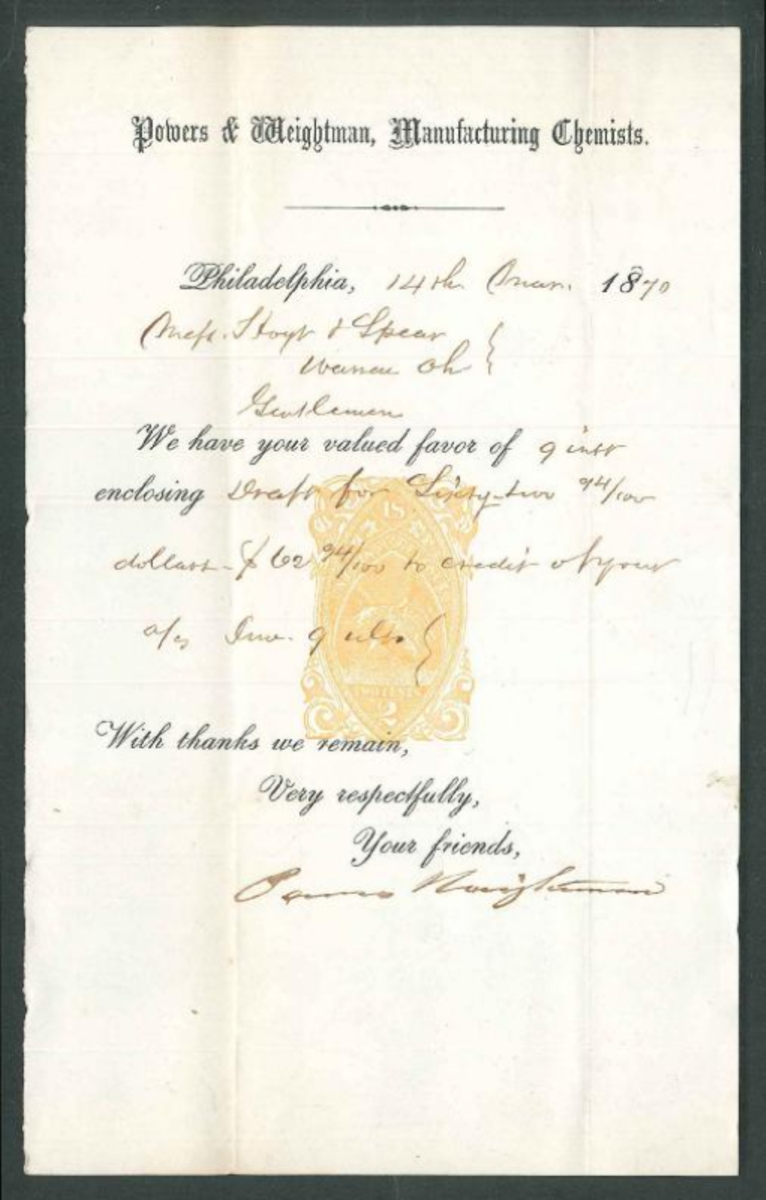 Powers & Weightman, Manufacturing Chemists.
Philadelphia, 14th Mar. 1870
Mess. Hoyt & Spear
Gentlemen
We have your valued favor of 9 inst
enclosing Draft for Sixty-two 94/100
dollars - $62 94/100 to credit of your
Inv. 9
TWO CENTS
2
With thanks we remain,
Very respectfully,
Your friends,
Powers Weightman